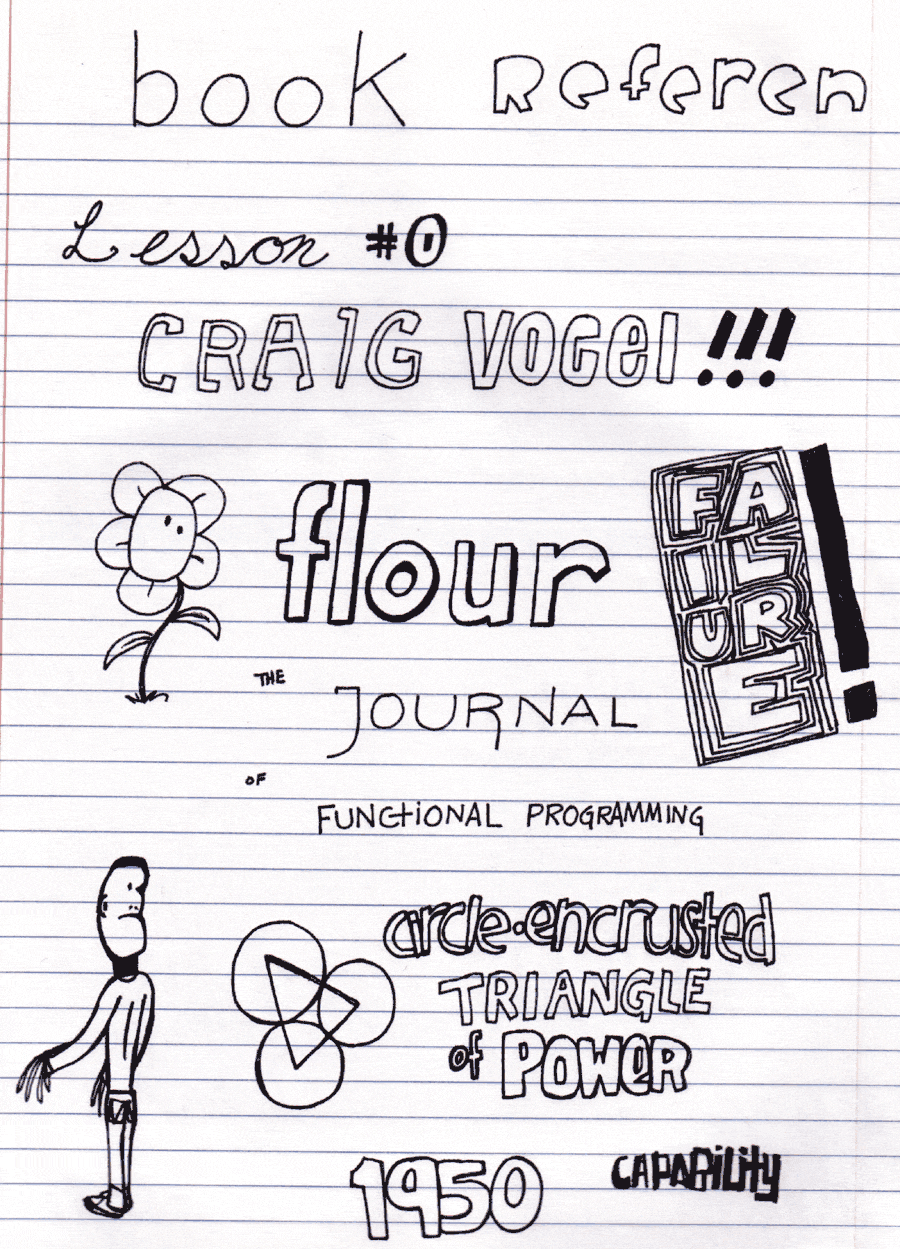 book Referen
Lesson #0
CRAIG VOGEl!!!
flour
FAILURE!
THE
JOURNAL
OF
FUNCtiONAL PROGRAMMING
circle-encrusted
TRIANGLE
of POWeR
1950
CAPABility